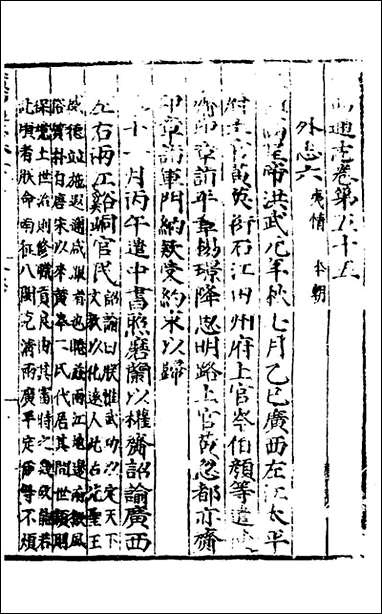 通志卷第五十五
外志六 夷情 本朝
皇帝洪武元年秋七月乙巳廣西左江太平
府土官黃英衍右江田州府土官岑伯顏等遣
齎印章詣平章楊璟降思明路土官黃忽都亦齎
印章詣軍門納款受約束以歸
十一月丙午遣中書照磨蘭以權齎詔諭廣西
左右兩江谿峒官民詔諭曰朕惟武功以定天下
文教以化遠人此古先聖王
威德並施遐邇咸服者也睠茲兩江地邊南徼風
俗質朴自唐宋以來黃岑二氏代居其間世亂則
保境土世治則修職貢良由其審時知幾故能若
此頃者朕命南征八閩克清兩廣平定爾等不煩